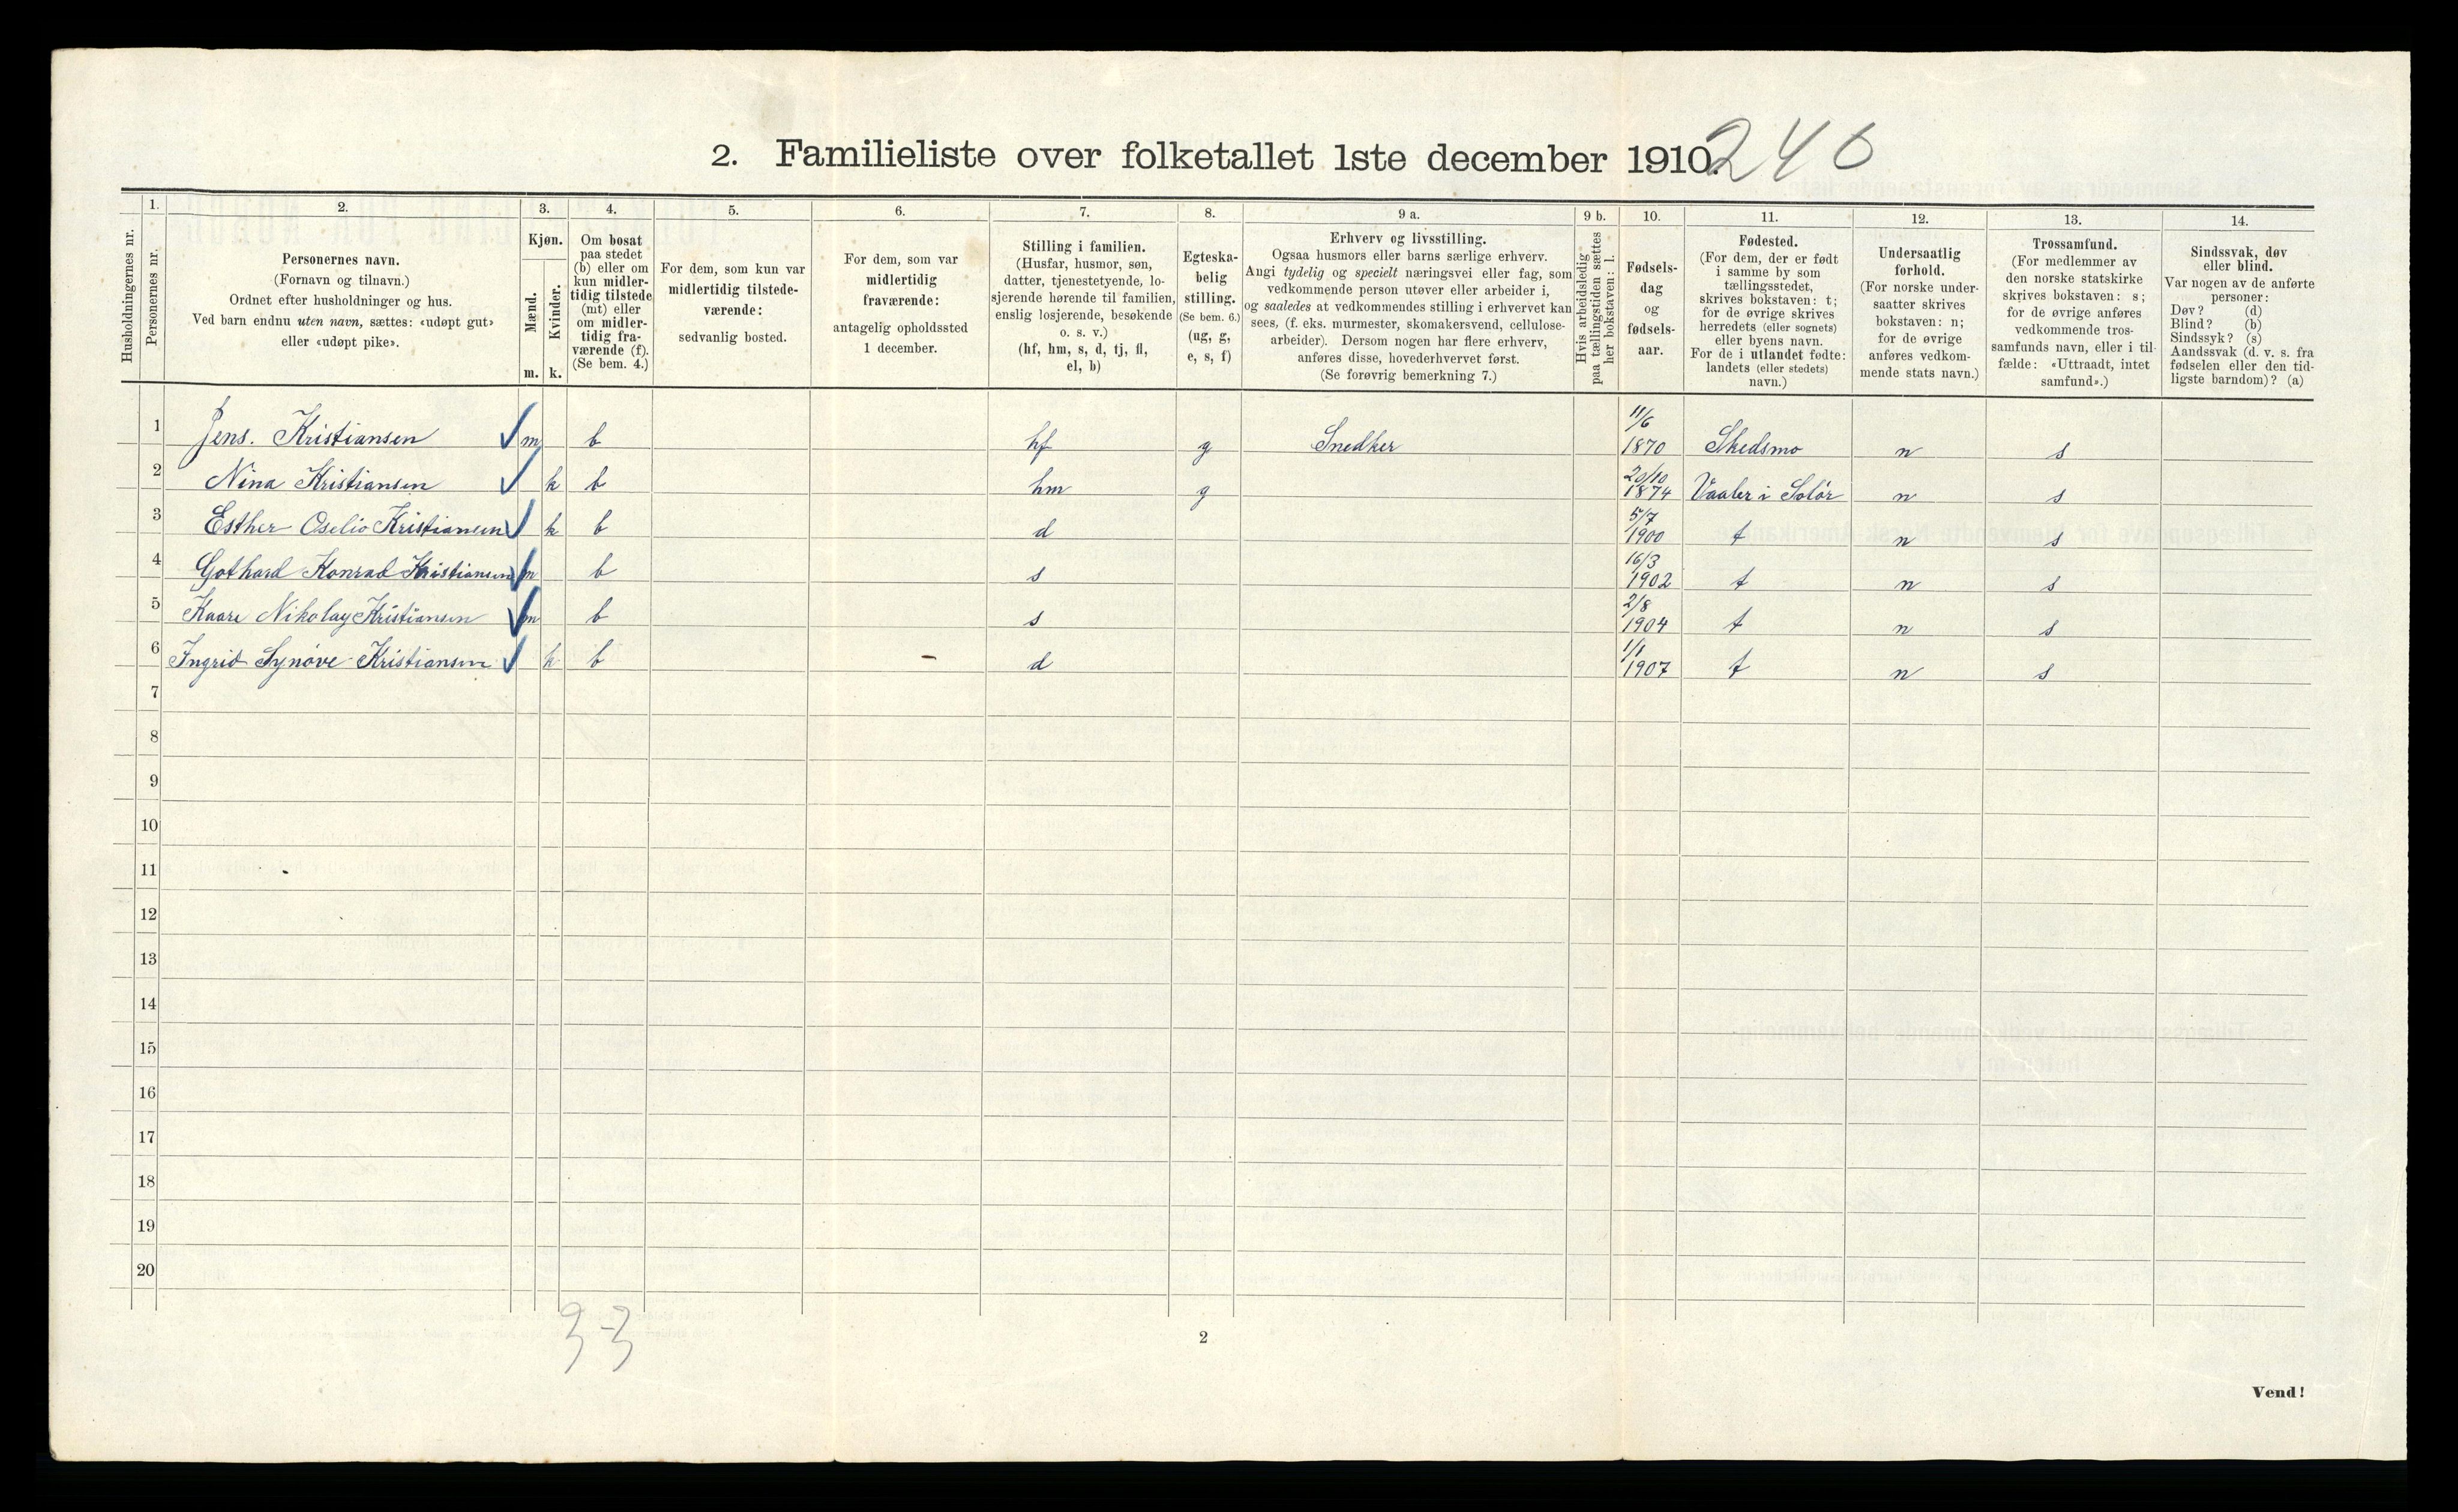 2. Familieliste over folketallet 1ste december 1910.
246
Husholdningernes nr.
1. Personernes nr.
2. Personernes navn.
(Fornavn og tilnavn.)
Ordnet efter husholdninger og hus.
Ved barn endnu uten navn, sættes: «udøpt gut»
eller «udøpt pike».
3. Kjøn.
Mænd. m.
Kvinder. k.
4. Om bosat
paa stedet
(b) eller om
kun midler-
tidig tilstede
(mt) eller
om midler-
tidig fra-
værende (f).
(Se bem. 4.)
5. For dem, som kun var
midlertidig tilstede-
værende:
sedvanlig bosted.
6. For dem, som var
midlertidig
fraværende:
antagelig opholdssted
1 december.
7. Stilling i familien.
(Husfar, husmor, søn,
datter, tjenestetyende, lo-
sjerende hørende til familien,
enslig losjerende, besøkende
o. s. v.)
(hf, hm, s, d, tj, fl,
el, b)
8. Egteska-
belig
stilling.
(Se bem. 6.)
(ug, g,
e, s, f)
9 a. Erhverv og livsstilling.
Ogsaa husmors eller barns særlige erhverv.
Angi tydelig og specielt næringsvei eller fag, som
vedkommende person utøver eller arbeider i,
og saaledes at vedkommendes stilling i erhvervet kan
sees, (f. eks. murmester, skomakersvend, cellulose-
arbeider). Dersom nogen har flere erhverv,
anføres disse, hovederhvervet først.
(Se forøvrig bemerkning 7.)
9 b. Hvis arbeidsledig
paa tællingstiden sættes
her bokstaven: l.
10. Fødsels-
dag
og
fødsels-
aar.
11. Fødested.
(For dem, der er født
i samme by som
tællingsstedet,
skrives bokstaven: t;
for de øvrige skrives
herredets (eller sognets)
eller byens navn.
For de i utlandet fødte:
landets (eller stedets)
navn.)
12. Undersaatlig
forhold.
(For norske under-
saatter skrives
bokstaven: n;
for de øvrige
anføres vedkom-
mende stats navn.)
13. Trossamfund.
(For medlemmer av
den norske statskirke
skrives bokstaven: s;
for de øvrige anføres
vedkommende tros-
samfunds navn, eller i til-
fælde: «Uttraadt, intet
samfund».)
14. Sindssvak, døv
eller blind.
Var nogen av de anførte
personer:
Døv? (d)
Blind? (b)
Sindssyk? (s)
Aandssvak (d. v. s. fra
fødselen eller den tid-
ligste barndom)? (a)
1 Jens. Kristiansen m b hf g Snedker 11/6 1870 Skedsmo n s
2 Nina Kristiansen k b hm g 20/10 1874 Vaaler i Solør n s
3 Esther Oselio Kristiansen k b d 5/7 1900 t n s
4 Gothard Konrad Kristiansen m b s 16/3 1902 t n s
5 Kaare Nikolay Kristiansen m b s 2/8 1904 t n s
6 Ingrid Synøve Kristiansen k b d 1/1 1907 t n s
7
8
9
10
11
12
13
14
15
16
17
18
19
20
3-3
2
Vend!